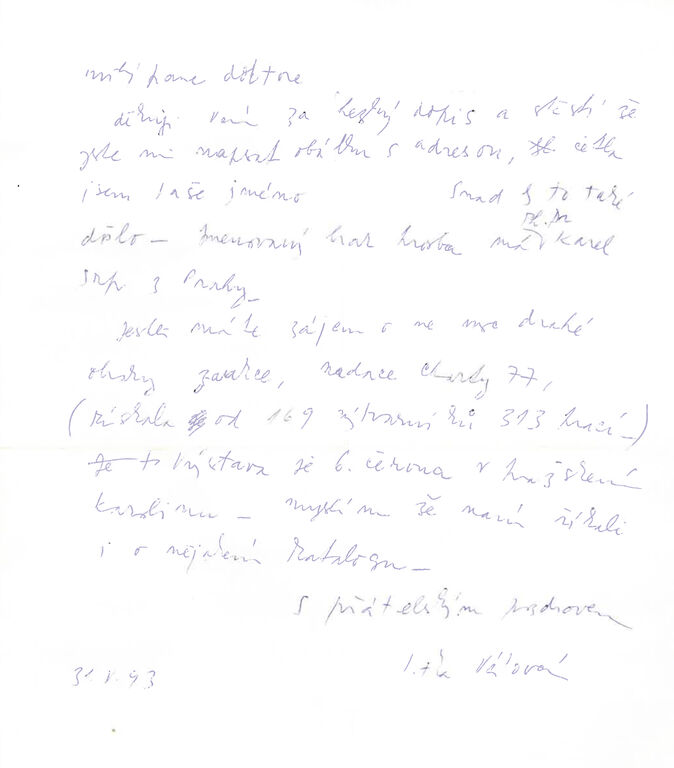 milý pane doktore
děkuji vám za hezký dopis a štěstí že
jste mi napsal obálku s adresou, četla
jsem Vaše jméno snad by to také
došlo –
má Karel
Srp. z Prahy –
Jestli máte zájem o ne moc drahé
obrazy nadace Charty 77,
(získala od 169 výtvarníků 313 prací –)
to výstava je 6. června v pražském
Karolinu – myslím že nám říkali
i o nějakém katalogu –
S přátelským pozdravem
Jitka Válová
31. V. 93